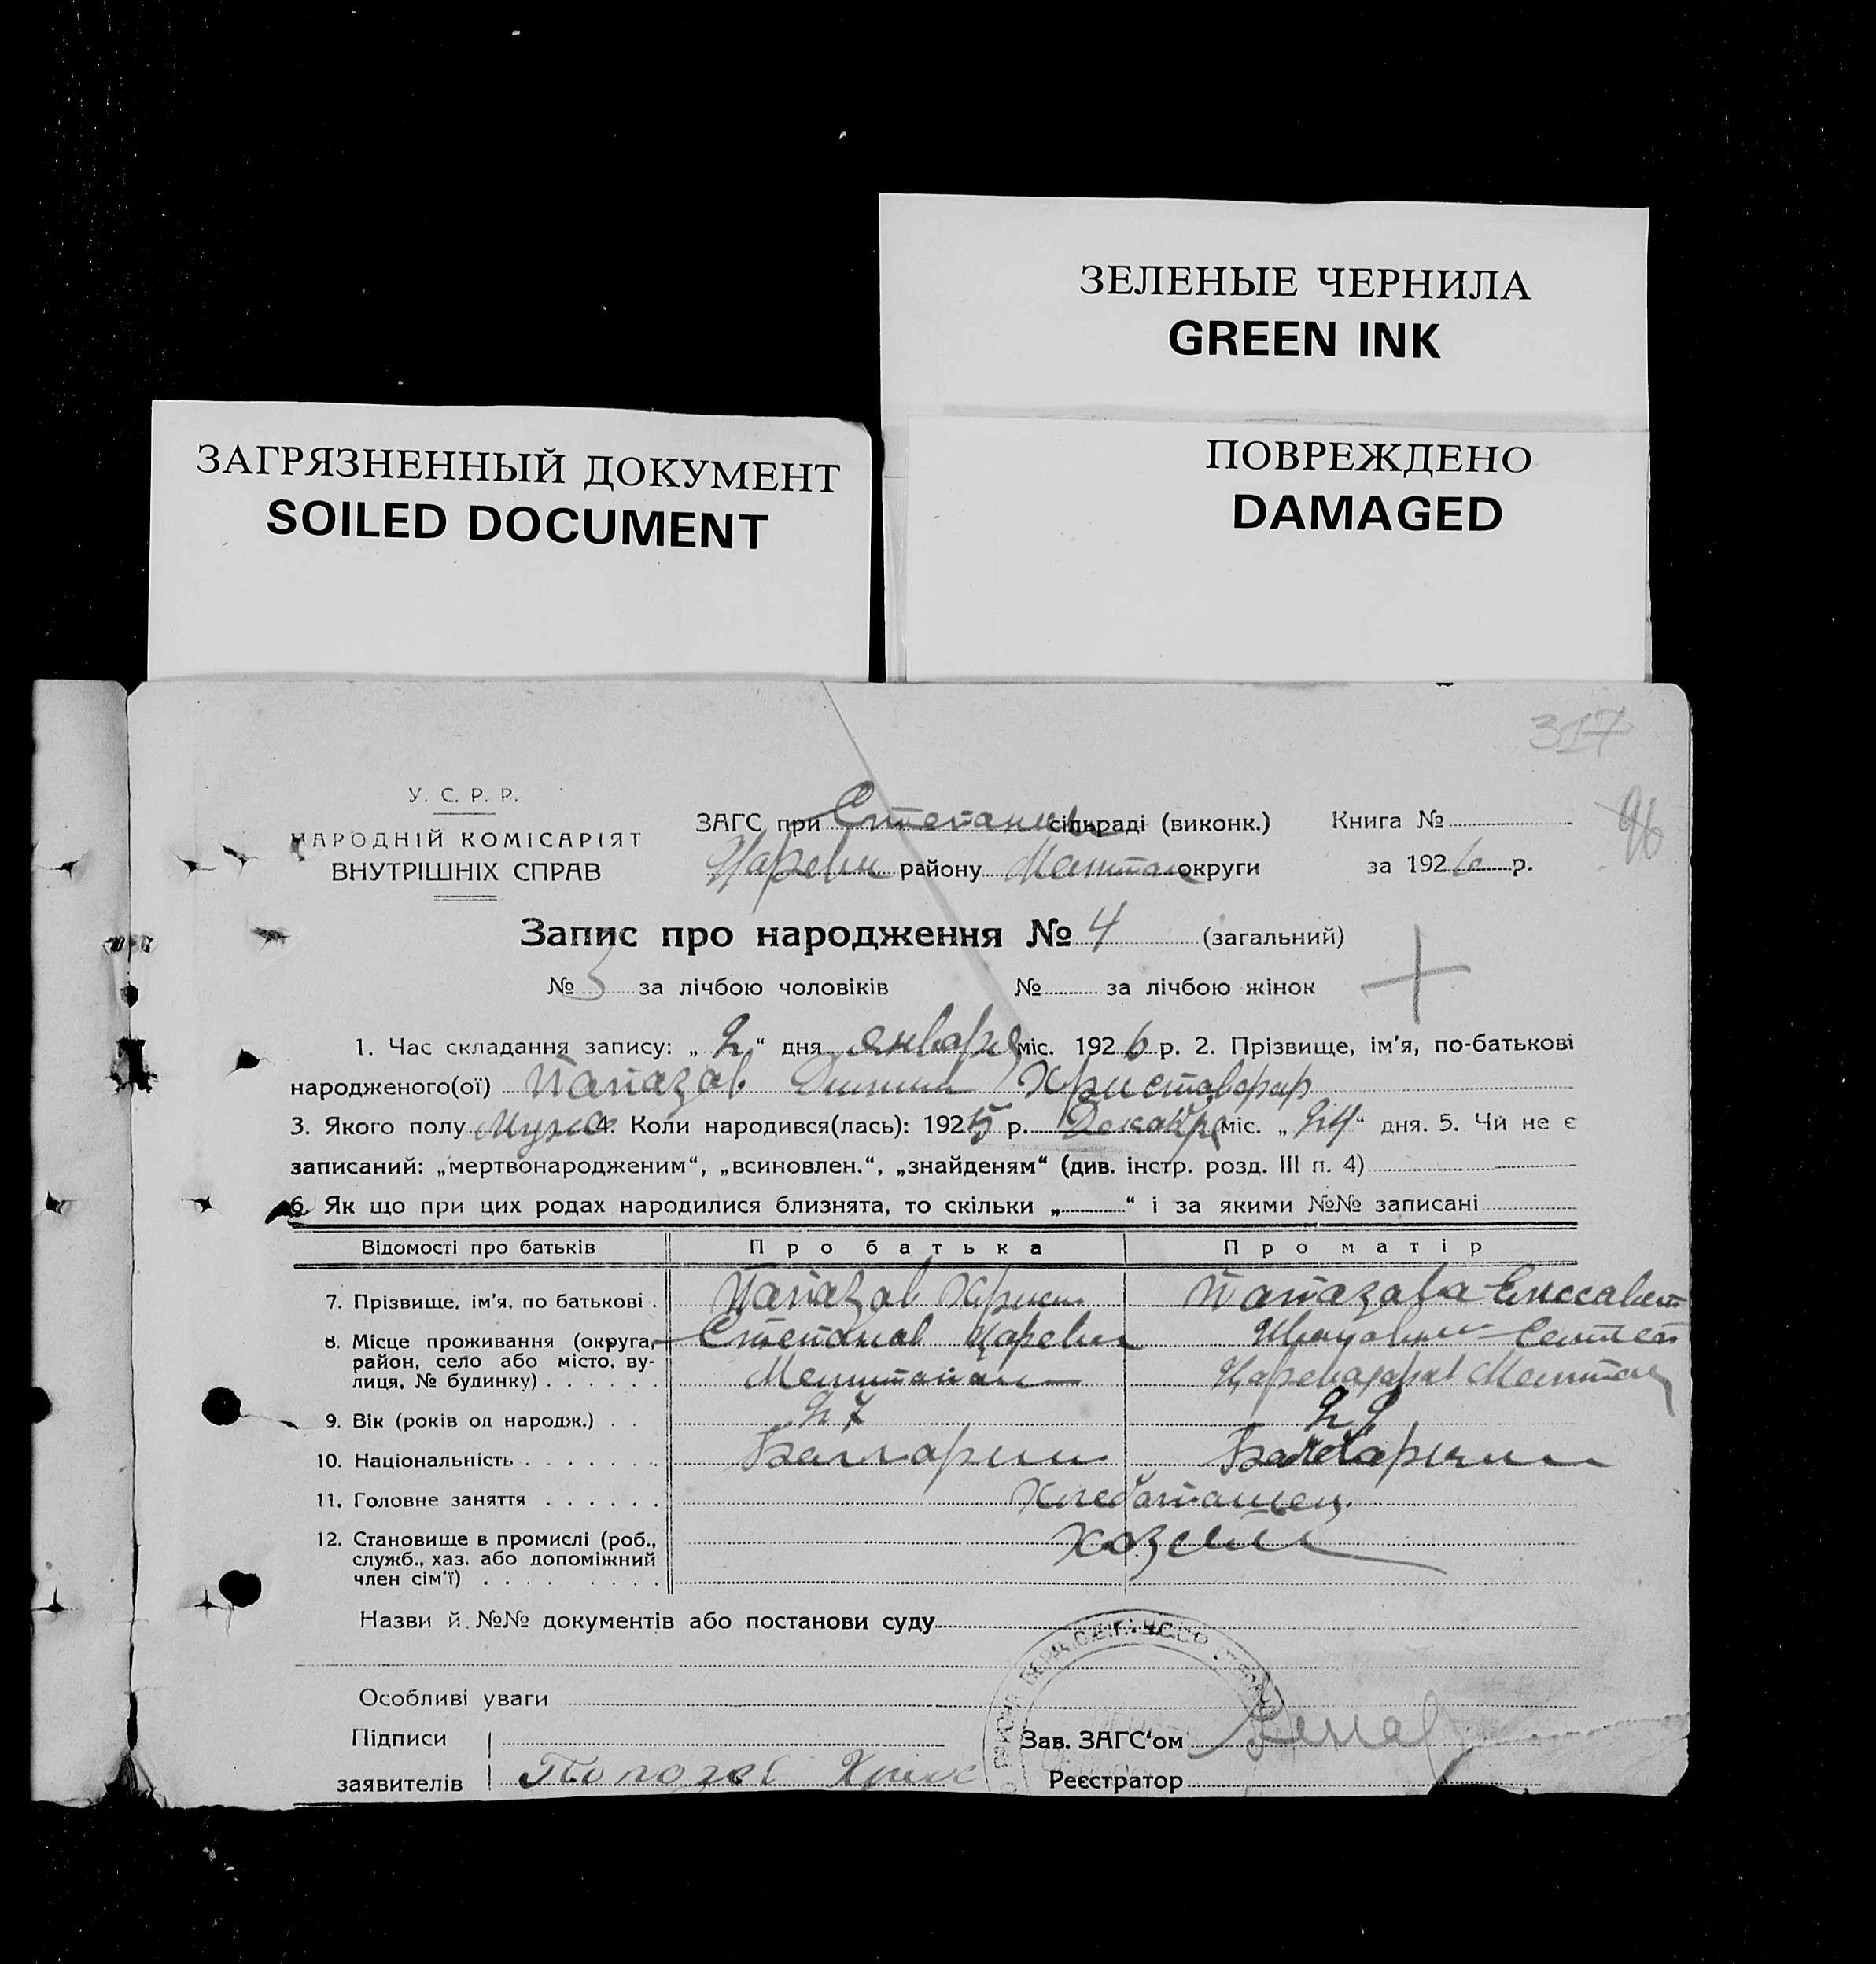 ЗЕЛЕНЫЕ ЧЕРНИЛА
GREEN INK
ЗАГРЯЗНЕННЫЙ ДОКУМЕНТ
SOILED DOCUMENT
ПОВРЕЖДЕНО
DAMAGED
317
96
У. С. Р. Р.
НАРОДНІЙ КОМІСАРІЯТ
ВНУТРІШНІХ СПРАВ
ЗАГС при сільраді (виконк.) Книга №
району округи за 1926 р.
Запис про народження № 4 (загальний)
№ 3 за лічбою чоловіків № за лічбою жінок
1. Час складання запису: „ 2 “ дня января міс. 1926 р. 2. Прізвище, ім’я, по-батькові
народженого(ої) Папазов
3. Якого полу Мужс 4. Коли народився(лась): 1925 р. Декабр міс. „ 24 “ дня. 5. Чи не є
записаний: „мертвонародженим“, „всиновлен.“, „знайденям“ (див. інстр. розд. III п. 4)
6. Як що при цих родах народилися близнята, то скільки „ “ і за якими №№ записані
Відомості про батьків Про батька Про матір
7. Прізвище, ім’я, по батькові . Папазов Крист Папазова Елиссавет
8. Місце проживання (округа, Степанов Царевк
район, село або місто, ву-
лиця, № будинку) . . . . . .
9. Вік (років од народж.) . . 27 29
10. Національність . . . . . . . Балгарин
11. Головне заняття . . . . . . Хлебопашец
12. Становище в промислі (роб., Хозеин
служб., хаз. або допоміжний
член сім’ї) . . . . . . . .
Назви й №№ документів або постанови суду
Особливі уваги
Підписи Зав. ЗАГС‘ом
заявителів Попозов Реєстратор